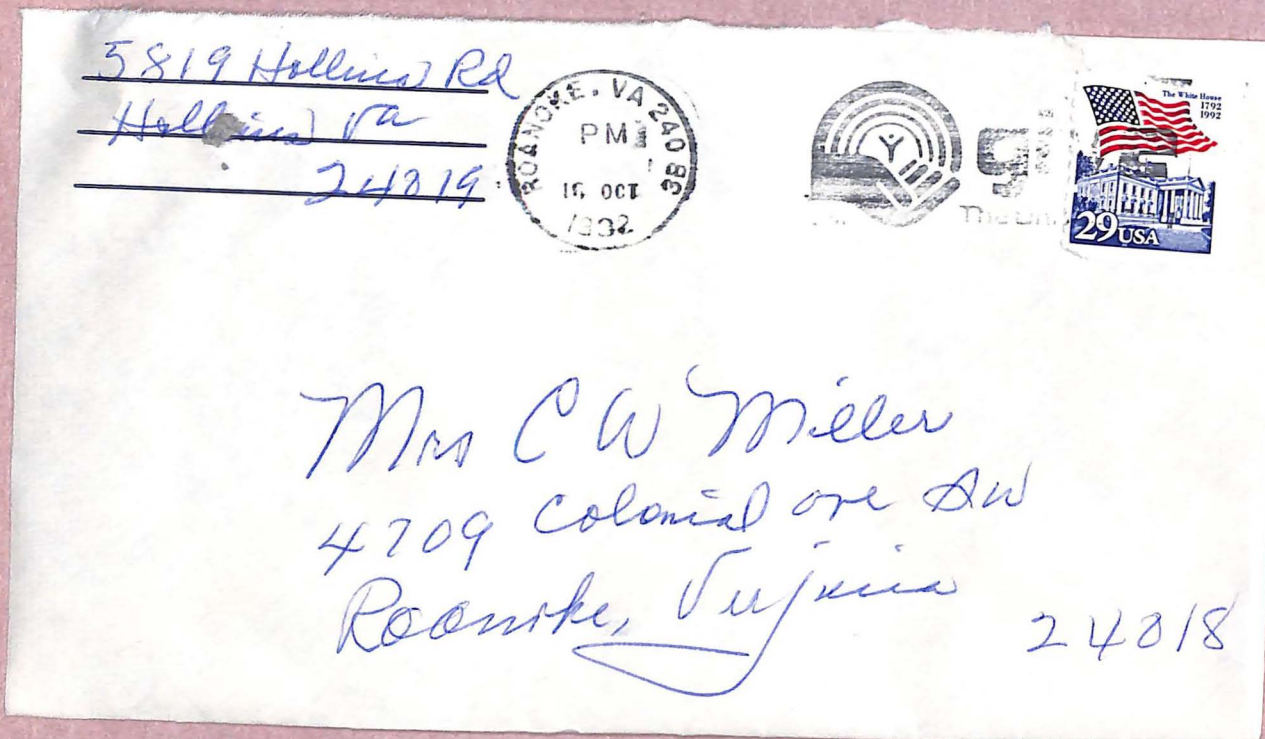 5819 Hollins Rd
Hollins Va
24019
ROANOKE, VA 240 3B
PM
OCT
1992
The White House
1792
1992
29 USA
Mrs C W Miller
4709 Colonial ave SW
Roanoke, Virginia
24018